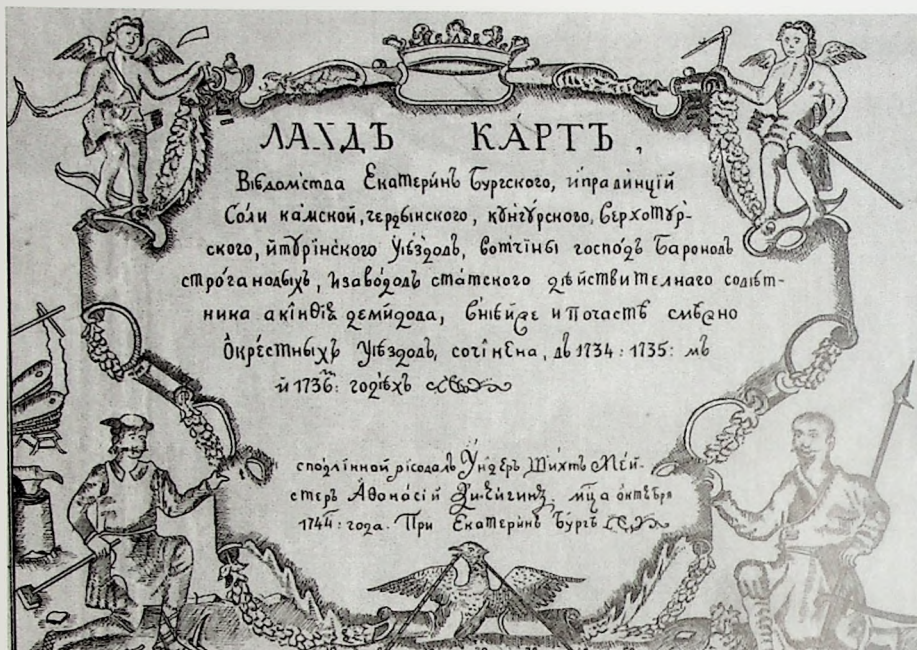 ЛАНДЪ КАРТЪ,
Вѣдомства Екатеринъ Бургского, и правинцій
Соли камской, чердынского, кунгурского, верхотур-
ского, и туринского Уѣздовъ, вотчины господъ Бароновъ
строгановыхъ, и заводовъ статского действителнаго совѣт-
ника акинфія демидова, и почасть смежно
Окрестныхъ Уѣздовъ, сочинена, въ 1734: 1735: мъ
и 1736: годѣхъ
сподлинной рисовалъ Ундеръ Шихтъ Мей-
стеръ Афонасій мца октября
1744: года. При Екатеринъ Бургѣ